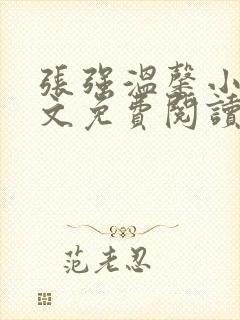 張強溫馨小
文免費閱讀
范老忍